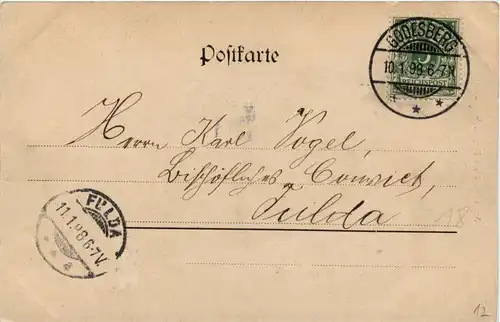 Postkarte
GODESBERG
10.1.98.6-7N
REICHSPOST
Herrn Karl Vogel,
Bischöfliches Convict,
Fulda
FULDA
11.1.98.6-7V.
12